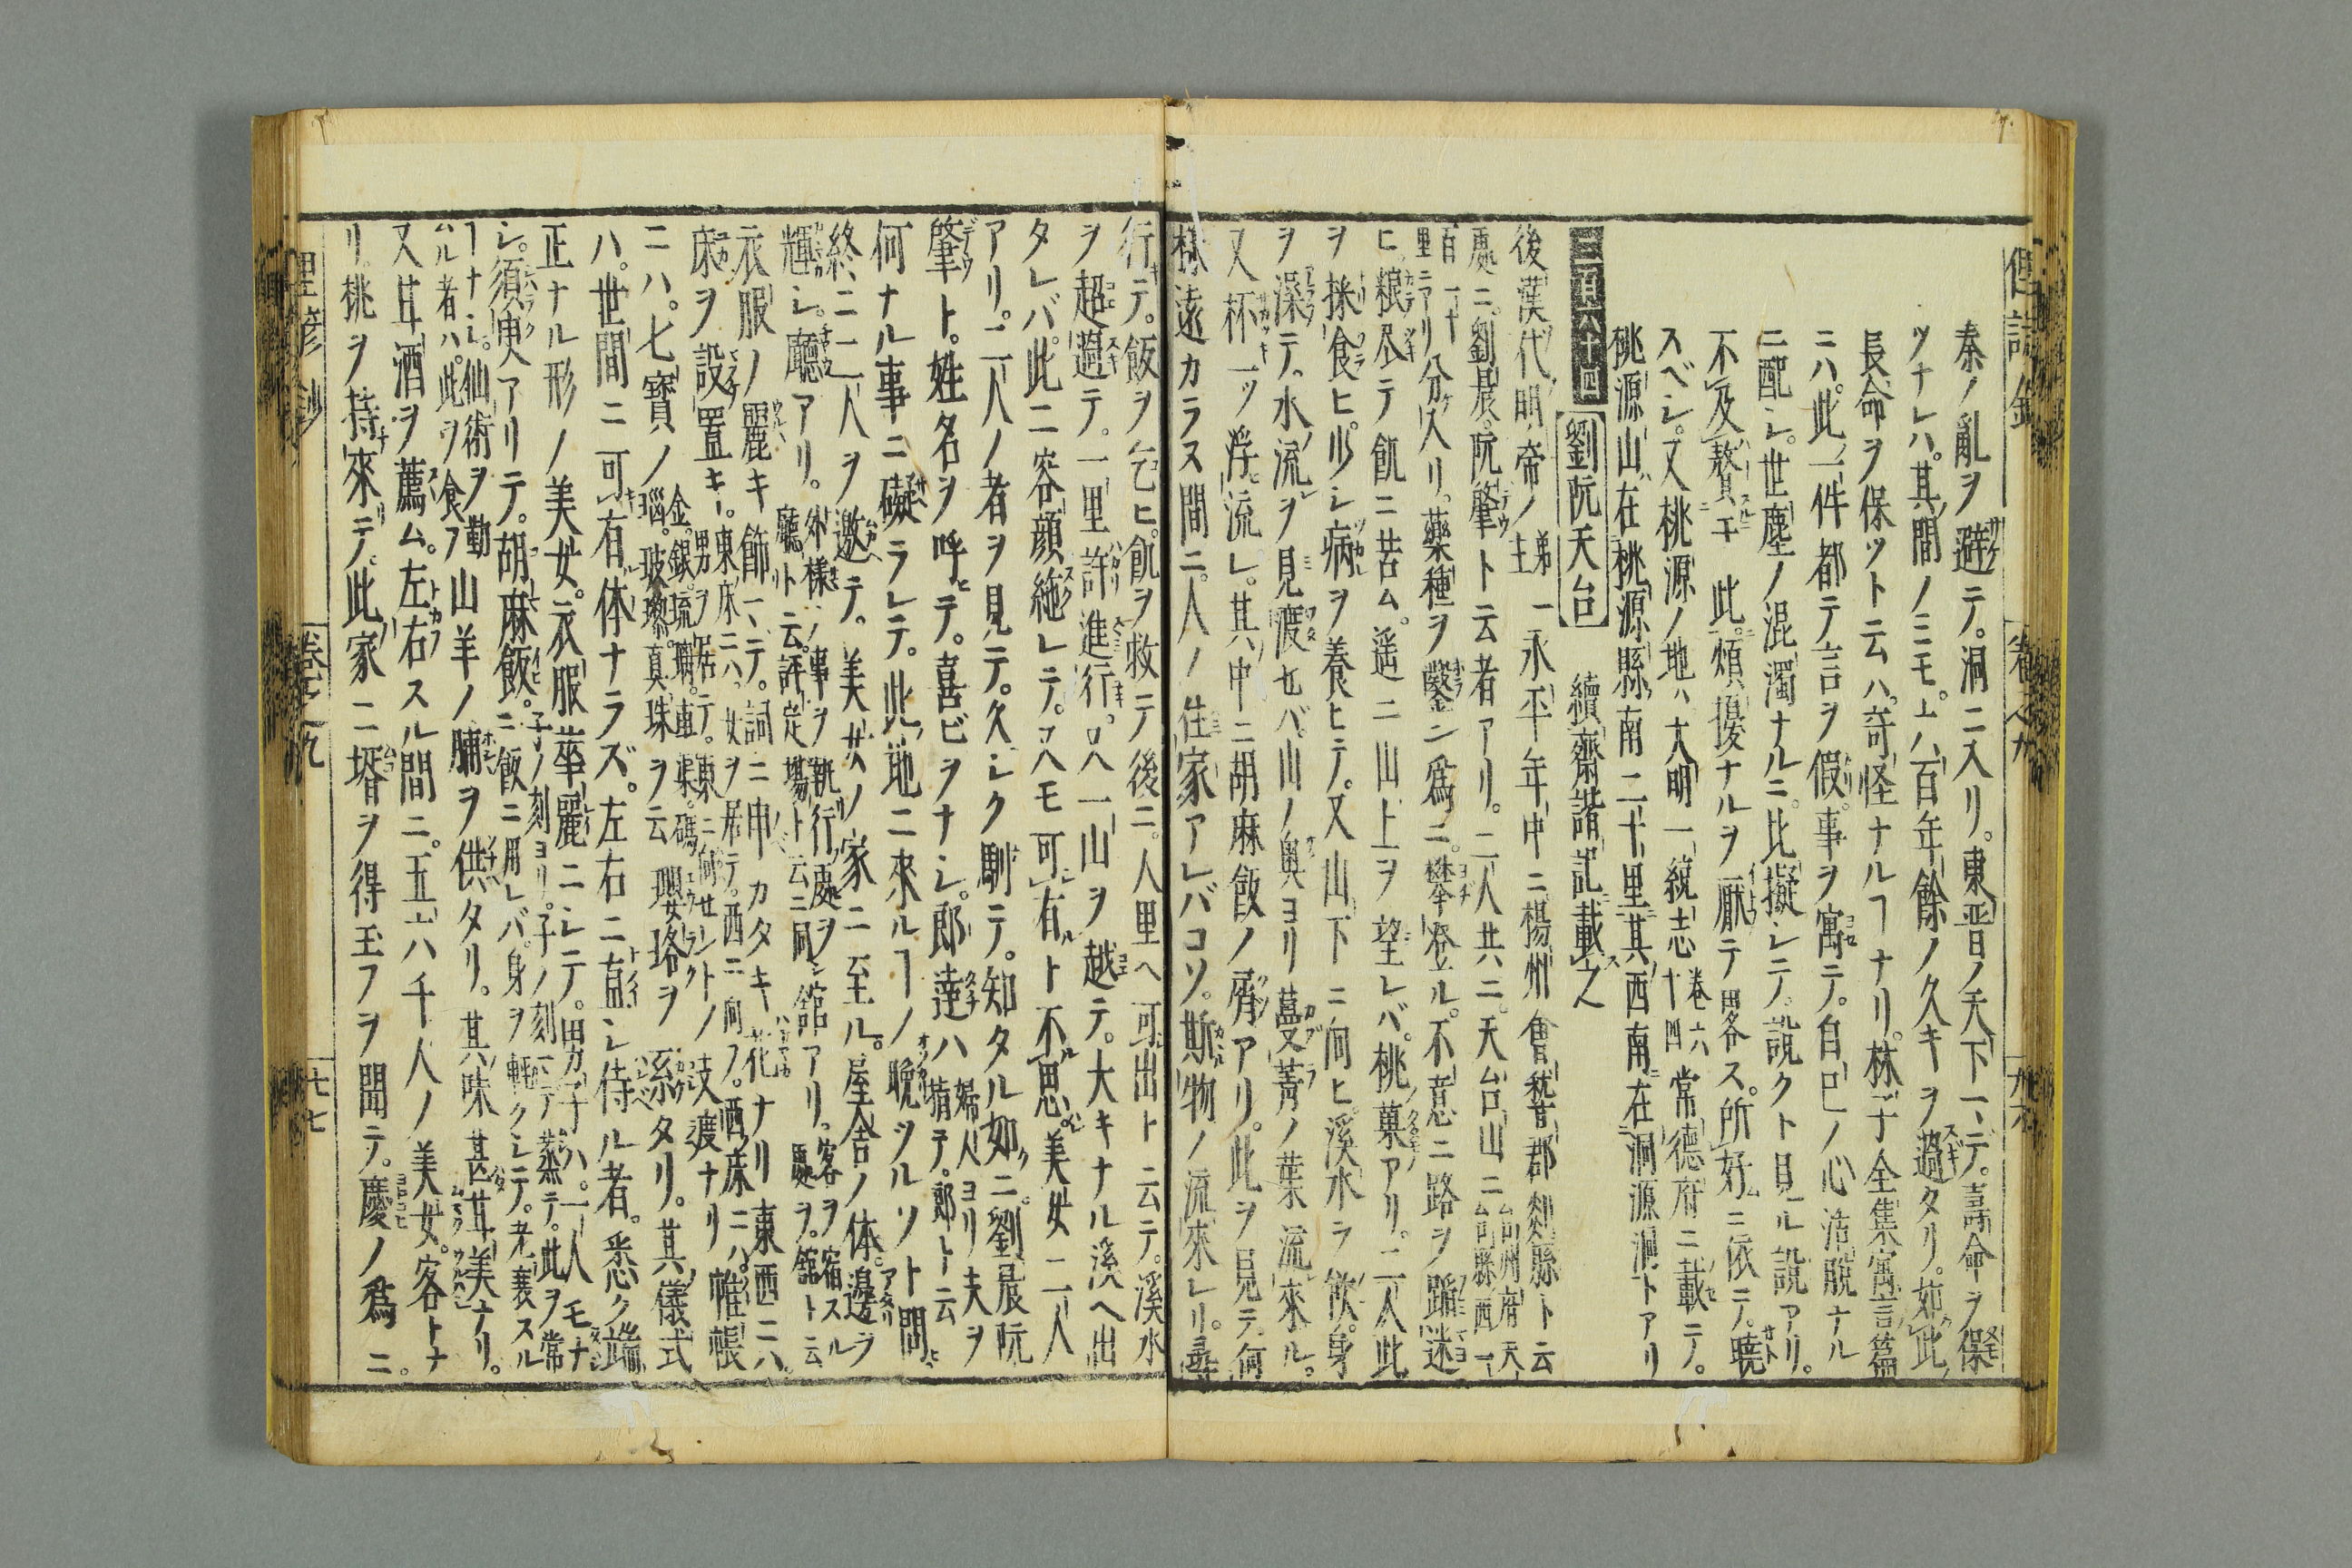 秦ノ亂ヲ避テ。洞ニ入リ。東晋ノ天下ニテ。壽命ヲ保
ツナレハ。其間ノミモ。六百年餘ノ久キヲ過タリ。如此
長命ヲ保ツト云ハ。奇怪ナルヿナリ。林子全集寓言篇
ニハ。此一件都テ言ヲ假。事ヲ寓テ。自己ノ心活脱ナル
ニ配シ。世塵ノ混濁ナルニ。比擬シテ。説クト見ル説アリ。
不及贅于此。煩擾ナルヲ厭テ畧ス。所好ニ依テ。曉
スベシ。又桃源ノ地ハ大明一統志巻六十四常德府ニ載テ。
桃源山在桃源縣南二十里其西南在洞源洞トアリ
二百六十四 劉阮天台 續齋諧記載之
後漢代明帝ノ弟主一永平年中ニ楊州會𥡴郡剡縣ト云
處ニ。劉晨。阮肇ト云者アリ。二人共ニ。天台山ニ台州府天台縣西一
百一十里ニアリ分入リ。藥種ヲ鑿ン爲ニ。攀登ル。不意ニ路ヲ蹈迷
ヒ。粮尽テ飢ニ苦ム。遥ニ山上ヲ望レバ。桃菓アリ。二人此
ヲ採食ヒ。少シ病ヲ養ヒテ。又山下ニ向ヒ。溪水ヲ飲。身
ヲ澡テ。水流ヲ見渡セバ。山ノ奥ヨリ蔓菁ノ葉流來ル。
又杯一ツ浮流レ。其中ニ胡麻飯ノ屑アリ。此ヲ見テ。何
樣遠カラス間ニ。人ノ住家アレバコソ。斯物ノ流來レリ。尋
行テ。飯ヲ乞ヒ。飢ヲ救テ後ニ。人里ヘ可出ト云テ。溪水
ヲ超過テ。一里許進行。又一山ヲ越テ。大キナル溪ヘ出
タレバ。此ニ容顔絶レテ。又モ可有ト不思。美女二人
アリ。二人ノ者ヲ見テ。久シク馴テ。知タル如ニ。劉晨阮
肇ト。姓名ヲ呼テ。喜ビヲナシ。郎達ハ婦人ヨリ夫ヲ指テ。郎ト云
何ナル事ニ礙ラレテ。此地ニ來ルヿノ晩ツルソト問
終ニ二人ヲ邀テ。美女ノ家ニ至ル。屋舎ノ体。邊ヲ
輝シ。廳アリ。外樣ノ事ヲ執行處ヲ廳ト云。評定場ト云ニ同シ舘アリ。客ヲ宿スル處ヲ。舘ト云
衣服ノ麗キ飾ニテ。詞ニ申カタキ花ナリ東西ニハ
床ヲ設置キ。東床ニハ。女ヲ居テ。西ニ向フ。西床ニハ。男ヲ居テ。東ニ向セントノ支渡ナリ帷帳
ニハ。七寶ノ金。銀。琉璃。車渠。碼瑙。玻瓈。真珠ヲ云瓔珞ヲ系タリ。其儀式
ハ。世間ニ可有体ナラズ。左右ニ直シ侍ル者。悉ク端
正ナル形ノ美女。衣服華麗ニシテ。男子ハ。一人モナ
シ。須臾アリテ。胡麻飯。子ノ刻ヨリ。子ノ刻ニテ蒸テ。此ヲ常ニ飯ニ用レバ。身ヲ軽クシテ。老衰スル
ヿナシ。仙術ヲ勤ムル者ハ。此ヲ食フ山羊ノ脯ヲ供タリ。其味甚甘美ナリ。
又甘酒ヲ薦ム。左右スル間ニ。五六八千人ノ美女。客トナ
リ。桃ヲ持來テ。此家ニ壻ヲ得玉フヲ聞テ。慶ノ爲ニ。
巻之九
九十六
巻之九
九十七